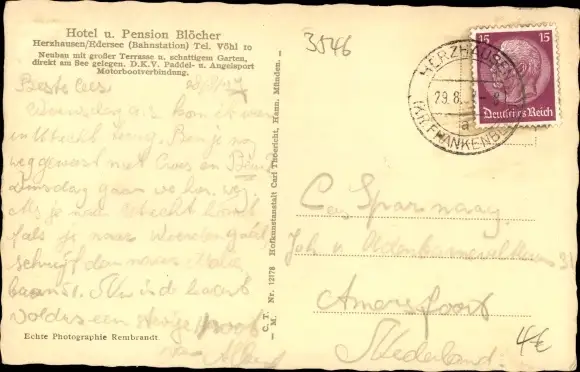 Hotel u. Pension Blöcher
Herzhausen/Edersee (Bahnstation) Tel. Vöhl 10
Neubau mit großer Terrasse u. schattigem Garten,
direkt am See gelegen. D.K.V. Paddel- u. Angelsport
Motorbootverbindung.
Beste Cees
Woensdag a.s. kom ik weer
in Utrecht terug. Ben je nog
weg geweest met Cees en
Dinsdag gaan we hier weg
Als je naar Utrecht komt
of als je naar Woerden gaat
schrijf dan naar
baan 51. Nu in de kaart
voldus een
van Albert
Echte Photographie Rembrandt
C. T. Nr. 12178 Hofkunstanstalt Carl Thoericht, Hann. Münden.
— M.
3546
15 15
Deutsches Reich
HERZHAUSEN
29.8.
a
(KR. FRANKENBERG)
Cees Sparnaay
Joh. v. Oldenbarneveltlaan 31
Amersfoort
Nederland.
4€